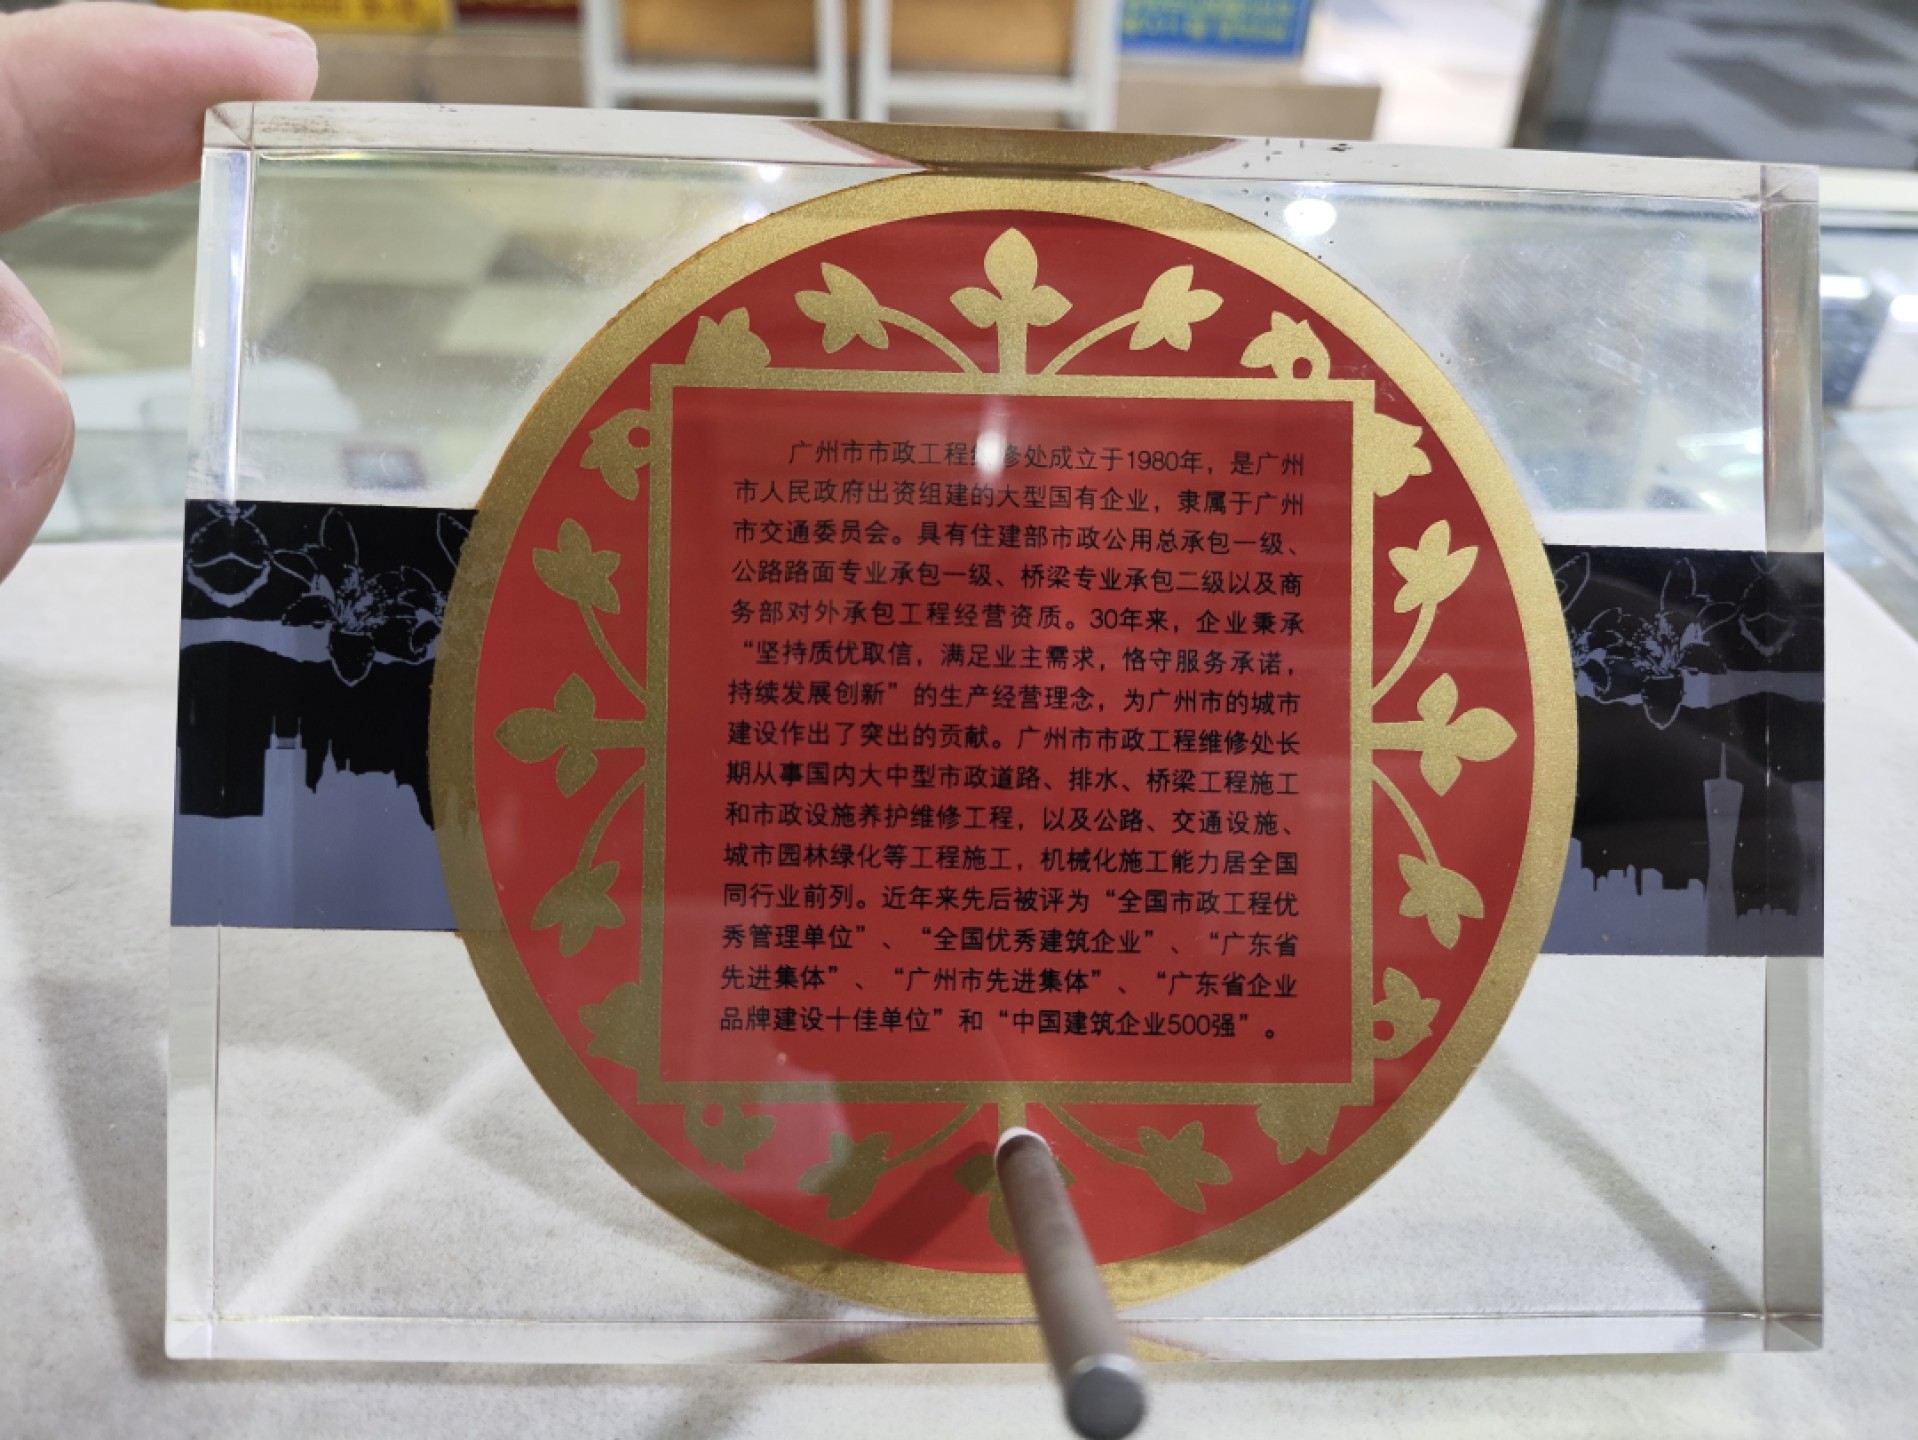 广州市市政工程维修处成立于1980年，是广州
市人民政府出资组建的大型国有企业，隶属于广州
市交通委员会。具有住建部市政公用总承包一级、
公路路面专业承包一级、桥梁专业承包二级以及商
务部对外承包工程经营资质。30年来，企业秉承
“坚持质优取信，满足业主需求，恪守服务承诺，
持续发展创新”的生产经营理念，为广州市的城市
建设作出了突出的贡献。广州市市政工程维修处长
期从事国内大中型市政道路、排水、桥梁工程施工
和市政设施养护维修工程，以及公路、交通设施、
城市园林绿化等工程施工，机械化施工能力居全国
同行业前列。近年来先后被评为“全国市政工程优
秀管理单位”、“全国优秀建筑企业”、“广东省
先进集体”、“广州市先进集体”、“广东省企业
品牌建设十佳单位”和“中国建筑企业500强”。